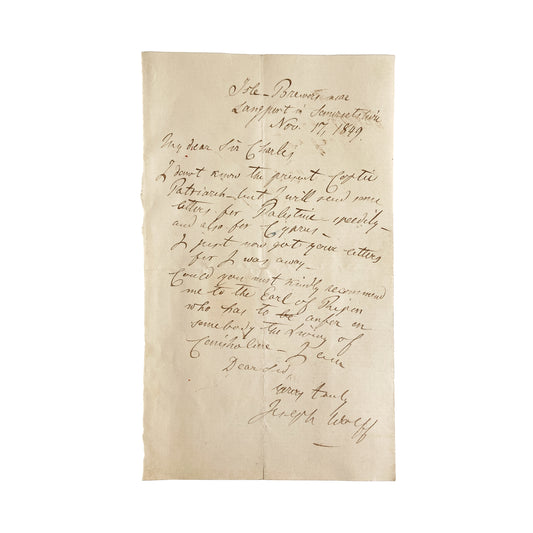 Isle-Brewers near
Langport in Somersetshire
Nov 17, 1849
My dear Sir Charles,
I don't know the present Coptic
Patriarch but I will send some
letters for Palestine speedily-
and also for Cyprus-
I just now got your letters
for I was away-
Could you most kindly recommend
me to the Earl of Ripon
who has to be confer on
somebody the living of
I am
Dear Sir,
yours truly
Joseph Wolff